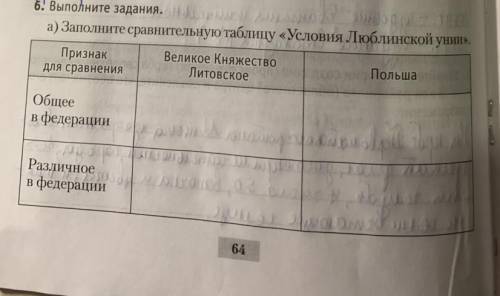 6. Выполните задания.
а) Заполните сравнительную таблицу «Условия Люблинской унии».
Признак
для сравнения
Великое Княжество
Литовское
Польша
Общее
в федерации
Различное
в федерации
64